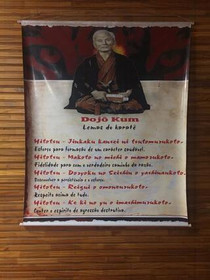 Dojô Kum
Lemas do karatê
Hitotsu - Jinkaku kansei ni tsutomurukoto.
Esforçar para formação de um caráter saudável.
Hitotsu - Makoto no michi o mamorukoto.
Fidelidade para com o verdadeiro caminho da razão.
Hitotsu - Doryoku no Seishin o yashinaukoto.
Hitotsu - Reigui o omonzurukoto.
Respeito acima de tudo.
Hitotsu - Ke ki no yu o imashimurukoto.
Conter o espírito de agressão destrutiva.